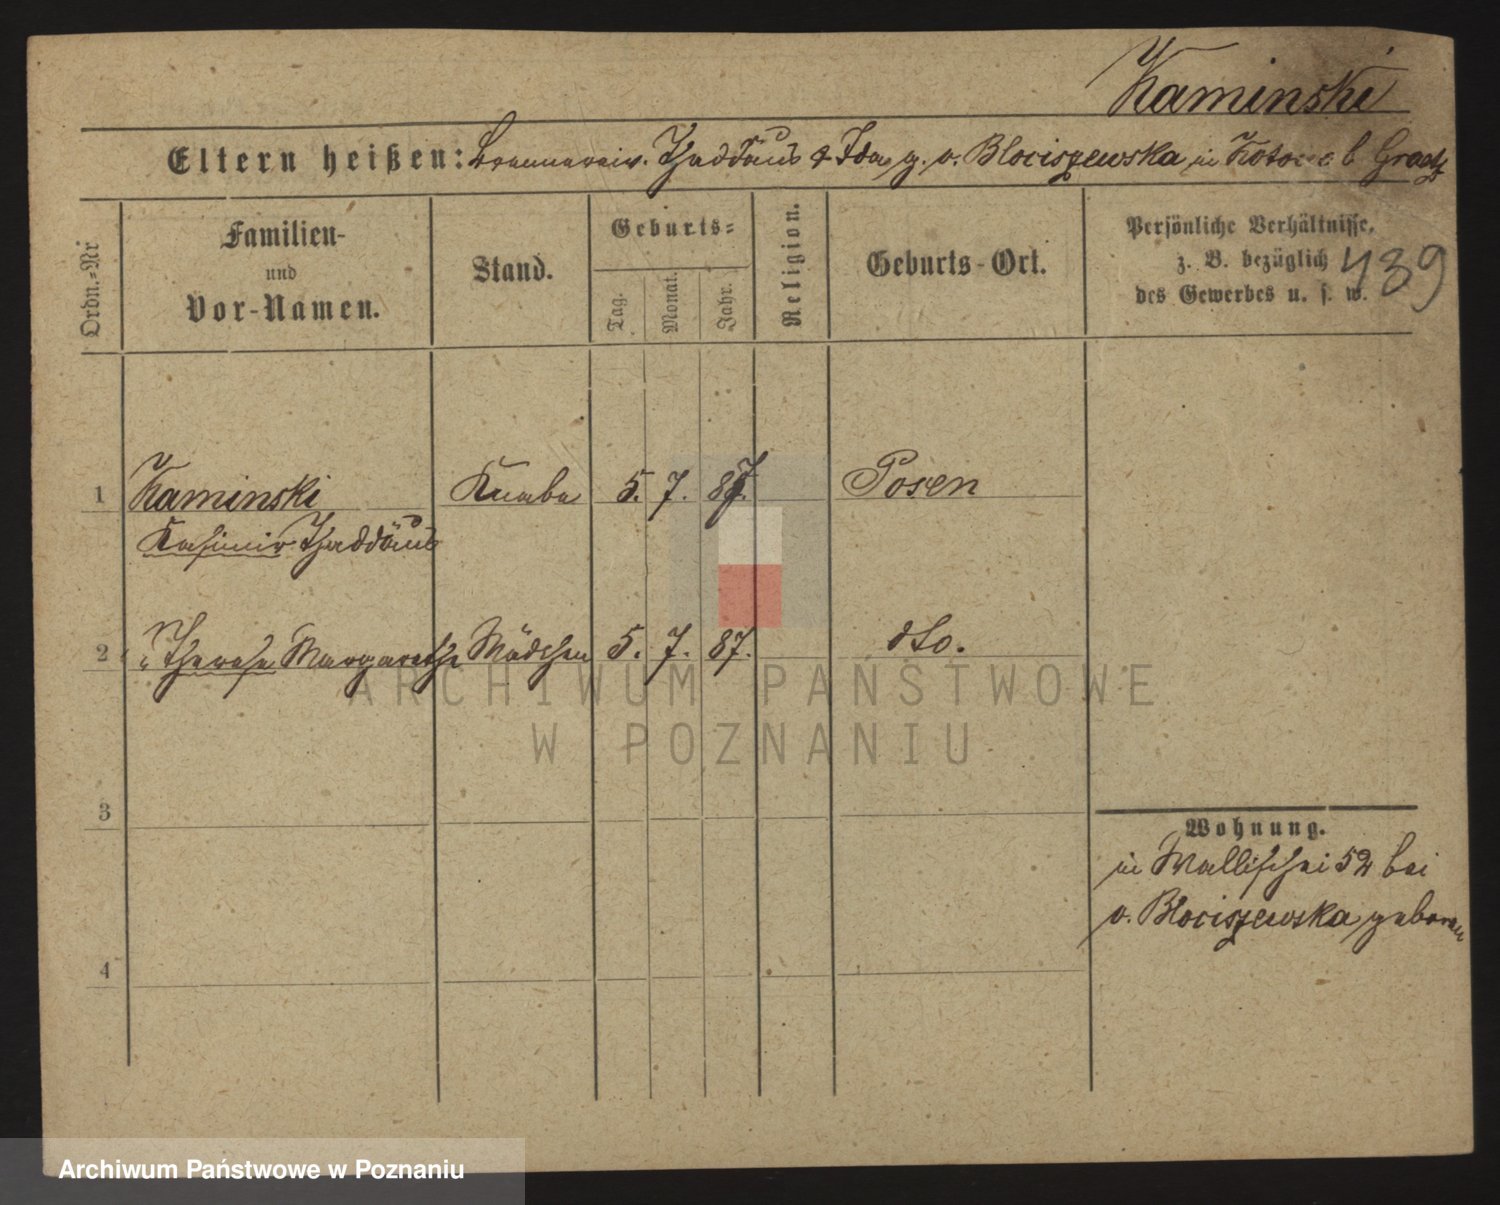 Kaminski
Eltern heißen: Brennereiv. Thaddäus & Ida g. v. Blociszewska in Kotowo b Graetz
Ordn.-Nr
Familien- und Vor-Namen.
Stand.
Geburts=
Tag.
Monat.
Jahr.
Religion.
Geburts-Ort.
Persönliche Verhältnisse,
z. B. bezüglich
des Gewerbes u. s. w.
439
1 Kaminski Knabe 5. 7. 87. Posen
Kasimir Thaddäus
2 " Therese Margarethe Mädchen 5. 7. 87. dto.
3
4
Wohnung.
in Wallischei 52 bei
v. Blociszewska geboren
ARCHIWUM PAŃSTWOWE
W POZNANIU
Archiwum Państwowe w Poznaniu